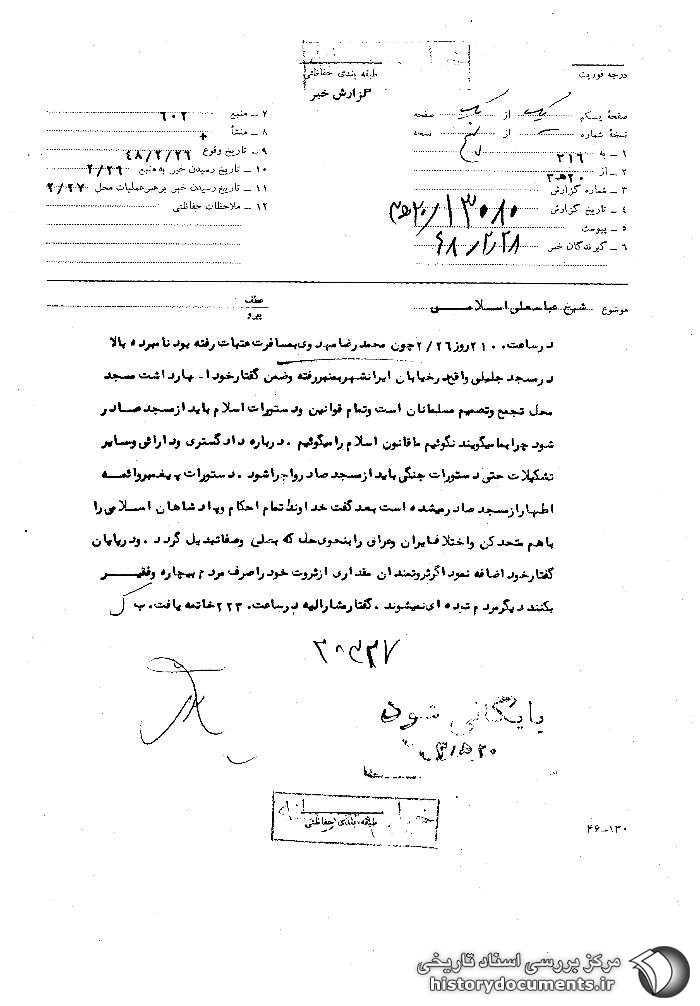 درجه فوریت
طبقه بندی حفاظتی
گزارش خبر
صفحهٔ یکم یک از یک صفحه
نسخهٔ شماره از پنج نسخه
۱ ـ به ۳۱۶
۲ ـ از ۲۰هـ۳
۳ ـ شماره گزارش ۲۰/۱۳۰۸۰هـ۳
۴ ـ تاریخ گزارش ۴۸/۲/۲۸
۵ ـ پیوست
۶ ـ گیرندگان خبر
۷ ـ منبع ۶۰۲
۸ ـ منشأ +
۹ ـ تاریخ وقوع ۴۸/۲/۲۶
۱۰ ـ تاریخ رسیدن خبر به منبع ۲/۲۶
۱۱ ـ تاریخ رسیدن خبر برهبر عملیات محل ۲/۲۷
۱۲ ـ ملاحظات حفاظتی
موضوع شیخ عباسعلی اسلامی
عطف
پیرو
در ساعت ۲۱۰۰ روز ۲/۲۶ چون محمد رضا مهدوی بمسافرت عتبات رفته بود نامبرده بالا
در مسجد جلیلی واقع در خیابان ایرانشهر بمنبر رفته و ضمن گفتار خود اظهار داشت مسجد
محل تجمع و تصمیم مسلمانان است و تمام قوانین و دستورات اسلام باید از مسجد صادر
شود چرا بما میگویند نگوئیم ما قانون اسلام را میگوئیم . درباره دادگستری و دارائی و سایر
تشکیلات حتی دستورات جنگی باید از مسجد صادر و اجرا شود . دستورات پیغمبر و ائمه
اطهار از مسجد صادر میشده است بعد گفت خداوندا تمام احکام و پادشاهان اسلامی را
باهم متحد کن و اختلاف ایران و عراق را بنحوی حل که بصلح و صفا تبدیل گردد . و در پایان
گفتار خود اضافه نمود اگر ثروتمندان مقداری از ثروت خود را صرف مردم بیچاره و فقیر
بکنند دیگر مردم توده ای نمیشوند . گفتار مشارالیه در ساعت ۲۲۳۰ خاتمه یافت . ب
بایگانی شود
طبقه بندی حفاظتی
۴۶ـ۱۳۰
مرکز بررسی اسناد تاریخی
historydocuments.ir